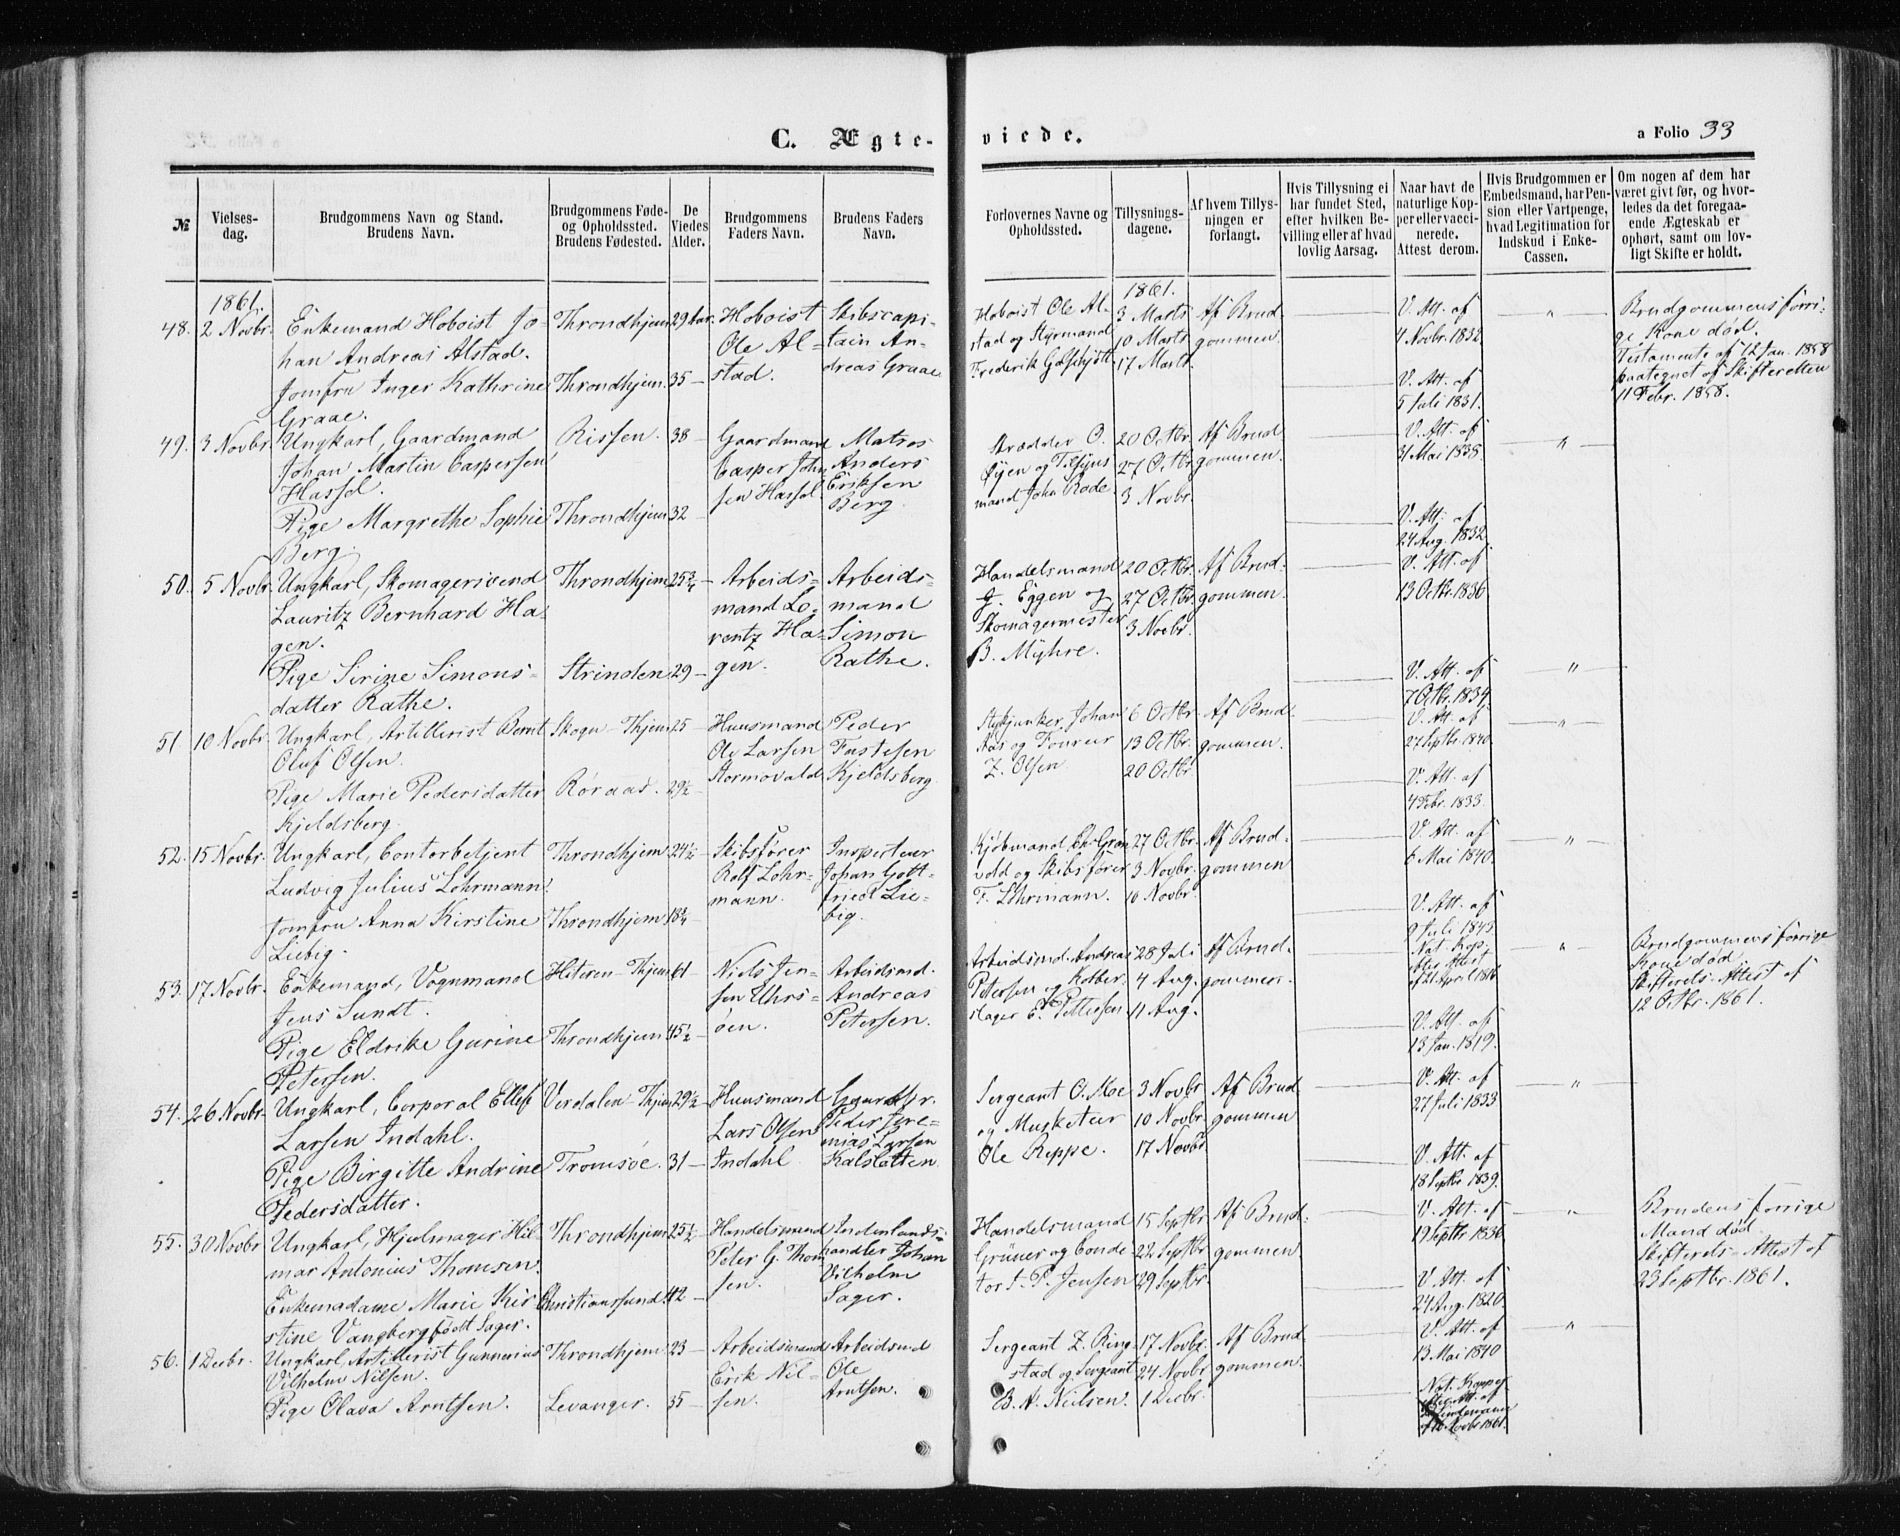 C. Ægteviede.
a Folio 33
№
Vielsesdag.
Brudgommens Navn og Stand.
Brudens Navn.
Brudgommens Føde-
og Opholdssted.
Brudens Fødested.
De
Viedes
Alder.
Brudgommens
Faders Navn.
Brudens Faders
Navn.
Forlovernes Navne og
Opholdssted.
Tillysnings-
dagene.
Af hvem Tillys-
ningen er
forlangt.
Hvis Tillysning ei
har fundet Sted,
efter hvilken Be-
villing eller af hvad
lovlig Aarsag.
Naar havt de
naturlige Kop-
per eller vacci-
nerede.
Attest derom.
Hvis Brudgommen er
Embedsmand, har Pen-
sion eller Vartpenge,
hvad Legitimation for
Indskud i Enke-
Cassen.
Om nogen af dem har
været givt før, og hvor-
ledes da det foregaa-
ende Ægteskab er
ophørt, samt om lov-
ligt Skifte er holdt.
1861.
48. 2 Novbr.
Enkemand Hoboist Jo-
han Andreas Alstad.
Jomfru Inger Kathrine
Graae.
Throndhjem
Throndhjem.
29 aar.
35 –
Hoboist
Ole Al-
stad.
Skibscapi-
tain An-
dreas Graae
Hoboist Ole Al-
stad og Styrmand
Frederik
1861.
3 Marts
10 Marts
17 Marts
Af Brud
gommen.
V. Att. af
4 Novbr. 1832.
V. Att. af
5 Juli 1831.
"
Brudgommens forri-
ge Kone død.
Testamente af 12 Jan. 1858
paategnet af Skifteretten
11 Febr. 1858.
49. 3 Novbr.
Ungkarl, Gaardmand
Johan Martin Caspersen
Hassel.
Pige Margrethe Sophie
Berg.
Rissen.
Throndhjem
38 –
32 –
Gaardmand
Casper John
sen Hassel
Matros
Anders
Eriksen
Berg.
Skrædder O.
Øyen og Tilsyns
mand John Rode.
20 Octbr.
27 Octbr.
3 Novbr.
Af Brud
gommen.
V. Att. af
31 Mai 1838.
V. Att. af
24 Aug. 1832.
"
50. 5 Novbr.
Ungkarl, Skomagersvend
Lauritz Bernhard Ha-
gen.
Pige Sirine Simons-
datter Rathe.
Throndhjem
Strinden
25¾ –
29 –
Arbeids-
mand Lo-
rentz Ha-
gen.
Arbeids-
mand
Simon
Rathe.
Handelsmand
J. Eggen og
Skomagermester
B. Myhre.
20 Octbr.
27 Octbr.
3 Novbr.
Af Brud-
gommen.
V. Att. af
13 Octbr. 1836.
V. Att. af
7 Octbr. 1834.
"
51 10 Novbr.
Ungkarl, Artillerist Bernt
Oluf Olsen.
Pige Marie Pedersdatter
Kjeldsberg.
Skogn - Thjem
Røraas.
25 –
29½ –
Huusmand
Ole Larsen
Stormovald
Peder
Fastesen
Kjeldsberg.
Stykjunker Johan
Aas og Fourer
Z. Olsen
6 Octbr.
13 Octbr.
20 Octbr.
Af Brud-
gommen.
V. Att. af
27 Septbr. 1840.
V. Att. af
4 Febr. 1833.
"
52. 15 Novbr.
Ungkarl, Contorbetjent
Ludvig Julius Lohrmann.
Jomfru Anna Kirstine
Liebig.
Throndhjem
Throndhjem
24½ –
18¾ –
Skibsfører
Rolf Lohr-
mann.
Inspecteur
Johan Gott-
fried Lie-
big.
Kjøbmand Chr. Grøn
vold og Skibsfører
F. Lohrmann.
27 Octbr.
3 Novbr.
10 Novbr.
Af Brud-
gommen
V. Att. af
6 Mai 1840.
V. Att. af
9 Juli 1843.
"
53. 17 Novbr.
Enkemand, Vognmand
Jens Sundt.
Pige Eldrike Gurine
Petersen.
Hiteren - Thjem
Throndhjem
61 –
45½ –
Niels Jen-
sen Uhrs-
øen.
Arbeidsmd.
Andreas
Petersen.
Arbeidsmd. Andreas
Petersen og Kobber-
slager E. Pettersen
28 Juli
4 Aug.
11 Aug.
Af Brud-
gommen.
Nat. Kop.
efter Attest
af 21 April 1816
V. Att. af
13 Jan. 1819.
"
Brudgommens forrige
Kone død.
Skifterets-Attest af
12 Octbr. 1861.
54. 26 Novbr.
Ungkarl, Corporal Ellef
Larsen Indahl.
Pige Birgitte Andrine
Pedersdatter.
Verdalen - Thjem
Tromsøe.
29½ –
31 –
Huusmand
Lars Olsen
Indahl.
Gaardbr.
Peder Jere-
mias Larsen
Kalsletten.
Sergeant O. Moe
og Musketeer
Ole Reppe.
3 Novbr
10 Novbr.
17 Novbr.
Af Brud
gommen
V. Att. af
27 Juli 1833
V. Att. af
18 Septbr 1839.
"
55. 30 Novbr
Ungkarl, Hjulmager Hil-
mar Antonius Thomsen.
Enkemadame Marie Kir
stine Vangberg født Sager.
Throndhjem
Christianssund.
25½ –
42 –
Handelsmand
Peter G. Thom
sen.
Indenlands-
handler Johan
Vilhelm
Sager.
Handelsmand
Grüner og Conde
tor J. P. Jensen
15 Septbr
22 Septbr.
29 Septbr.
Af Brud-
gommen
V. Att. af
19 Septbr 1836
V. Att. af
24 Aug. 1820.
"
Brudens forrige
Mand død.
Skifterets-Attest af
23 Septbr. 1861.
56. 1 Decbr.
Ungkarl, Artillerist Gunnerius
Vilhelm Nilsen.
Pige Olava Arntsen.
Throndhjem
Levanger.
23 –
35 –
Arbeidsmand
Erik Nil-
sen.
Arbeidsmd
Ole
Arntsen.
Sergeant Z. Ring-
stad og Sergeant
B. A. Nielsen.
17 Novbr.
24 Novbr.
1 Decbr.
Af Brud
gommen.
V. Att. af
13 Mai 1840
Nat. Kopper
1861.
"